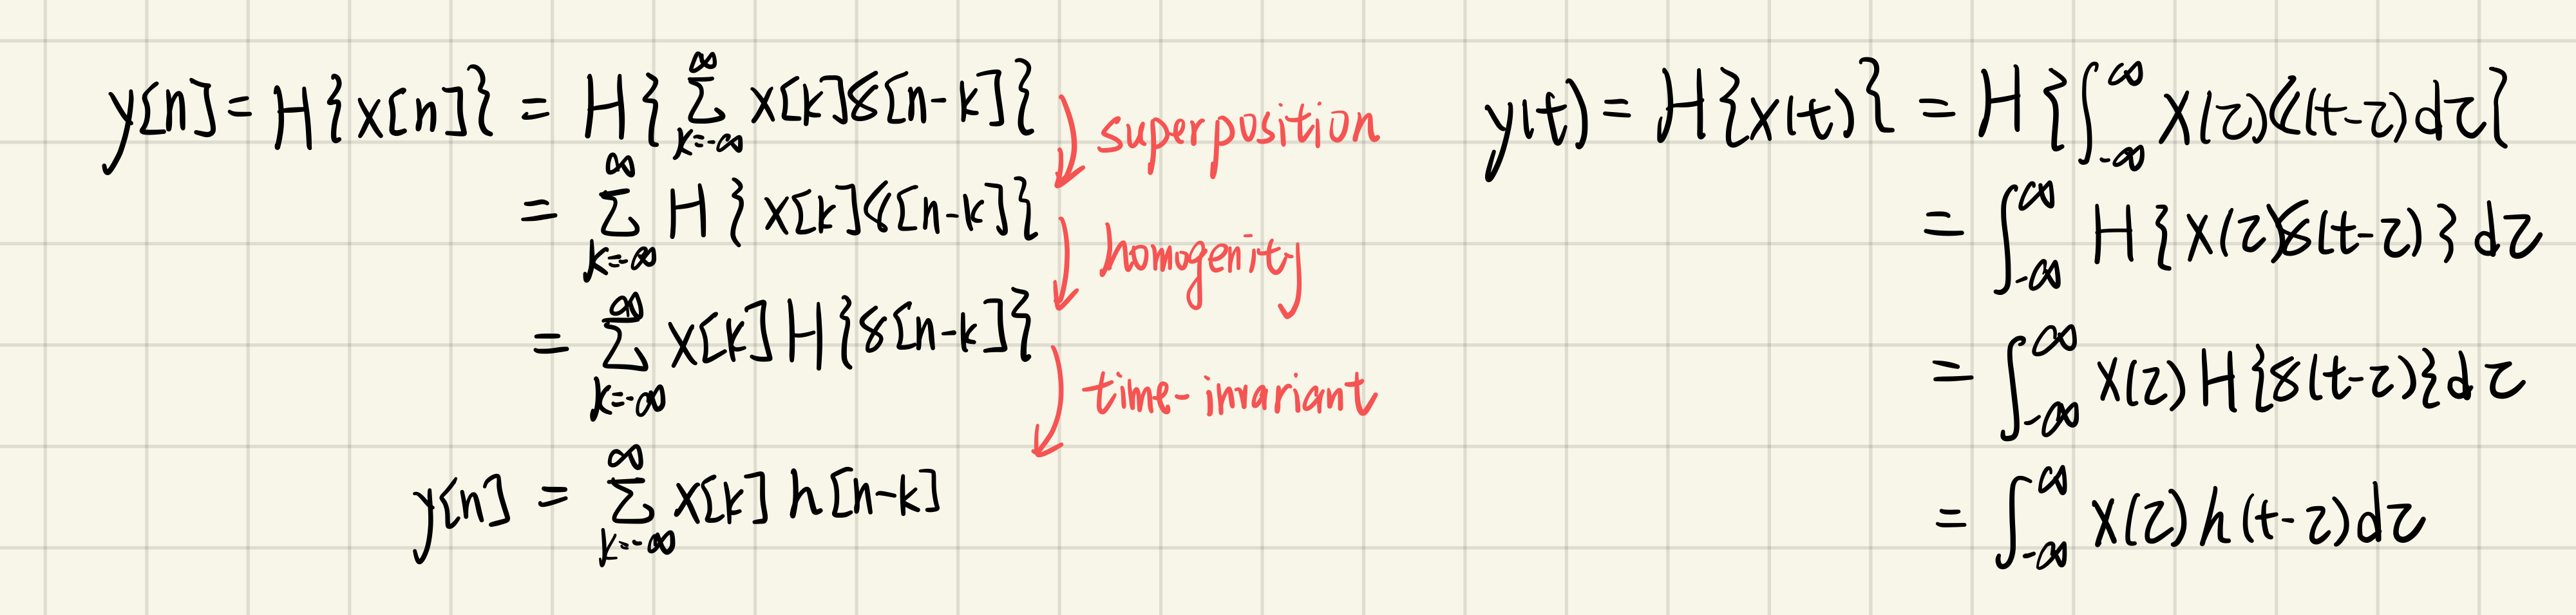 y[n] = H{x[n]} = H{∑_{k=-∞}^{∞} x[k]δ[n-k]}
superposition
= ∑_{k=-∞}^{∞} H{x[k]δ[n-k]}
homogenity
= ∑_{k=-∞}^{∞} x[k]H{δ[n-k]}
time-invariant
y[n] = ∑_{k=-∞}^{∞} x[k]h[n-k]
y(t) = H{x(t)} = H{∫_{-∞}^{∞} x(τ)δ(t-τ)dτ}
= ∫_{-∞}^{∞} H{x(τ)δ(t-τ)}dτ
= ∫_{-∞}^{∞} x(τ)H{δ(t-τ)}dτ
= ∫_{-∞}^{∞} x(τ)h(t-τ)dτ